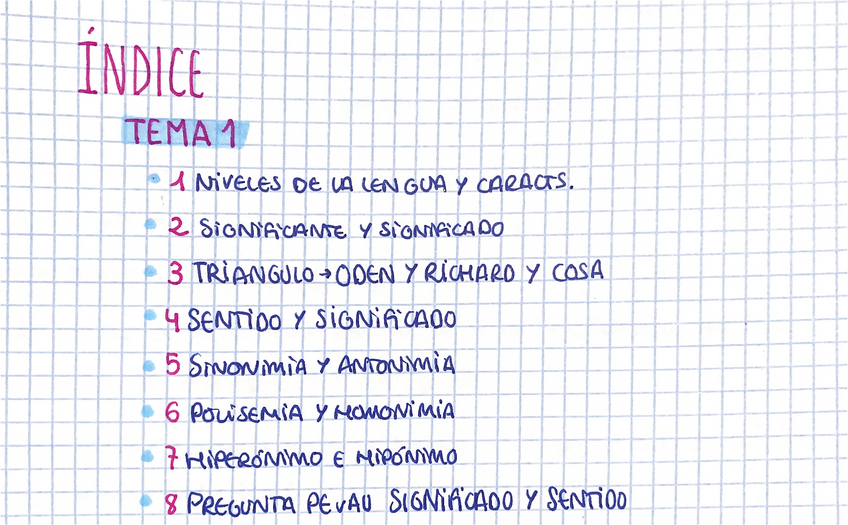 ÍNDICE
TEMA 1
1 NIVELES DE LA LENGUA Y CARACTS.
2 SIGNIFICANTE Y SIGNIFICADO
3 TRIANGULO → ODEN Y RICHARD Y COSA
4 SENTIDO Y SIGNIFICADO
5 SINONIMIA Y ANTONIMIA
6 POLISEMIA Y HOMONIMIA
7 HIPERÓNIMO E HIPÓNIMO
8 PREGUNTA PEVAU SIGNIFICADO Y SENTIDO